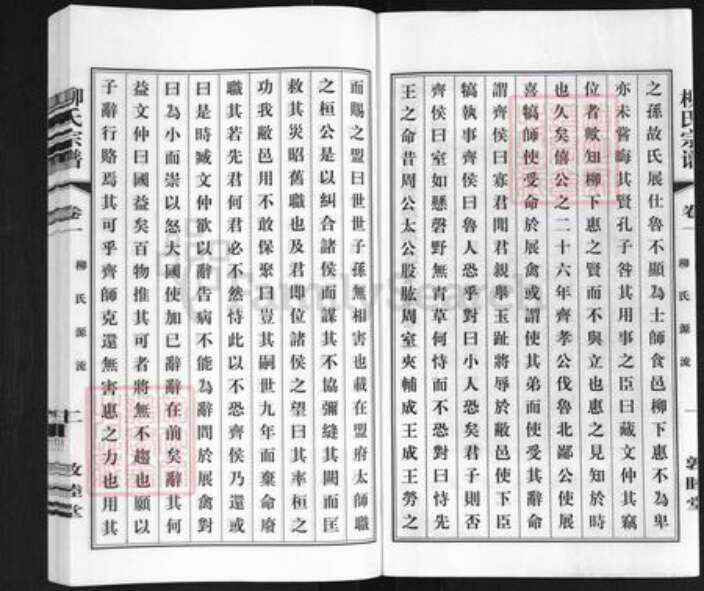 柳氏宗譜
卷一
柳氏源流
一
敦睦堂
之孫故氏展仕魯不顯為士師食邑柳下惠不為卑
亦未嘗晦其賢孔子咎其用事之臣曰臧文仲其竊
位者歟知柳下惠之賢而不與立也惠之見知於時
也久矣僖公之二十六年齊孝公伐魯北鄙公使展
喜犒師使受命於展禽或謂使其弟而使受其辭命
謂齊侯曰寡君聞君親舉玉趾將辱於敝邑使下臣
犒執事齊侯曰魯人恐乎對曰小人恐矣君子則否
齊侯曰室如懸磬野無青草何恃而不恐對曰恃先
王之命昔周公太公股肱周室夾輔成王成王勞之
而賜之盟曰世世子孫無相害也載在盟府太師職
之桓公是以糾合諸侯而謀其不協彌縫其闕而匡
救其災昭舊職也及君即位諸侯之望曰其率桓之
功我敝邑用不敢保聚曰豈其嗣世九年而棄命廢
職其若先君何君必不然恃此以不恐齊侯乃還或
曰是時臧文仲欲以辭告病不能為辭問於展禽對
曰為小而崇以怒大國使加巳辭辭在前矣辭其何
益文仲曰國益矣百物推其可者將無不趨也願以
子辭行賂焉其可乎齊師克還無害惠之力也用其
柳氏宗譜
卷一
柳氏源流
敦睦堂
FamilySearch